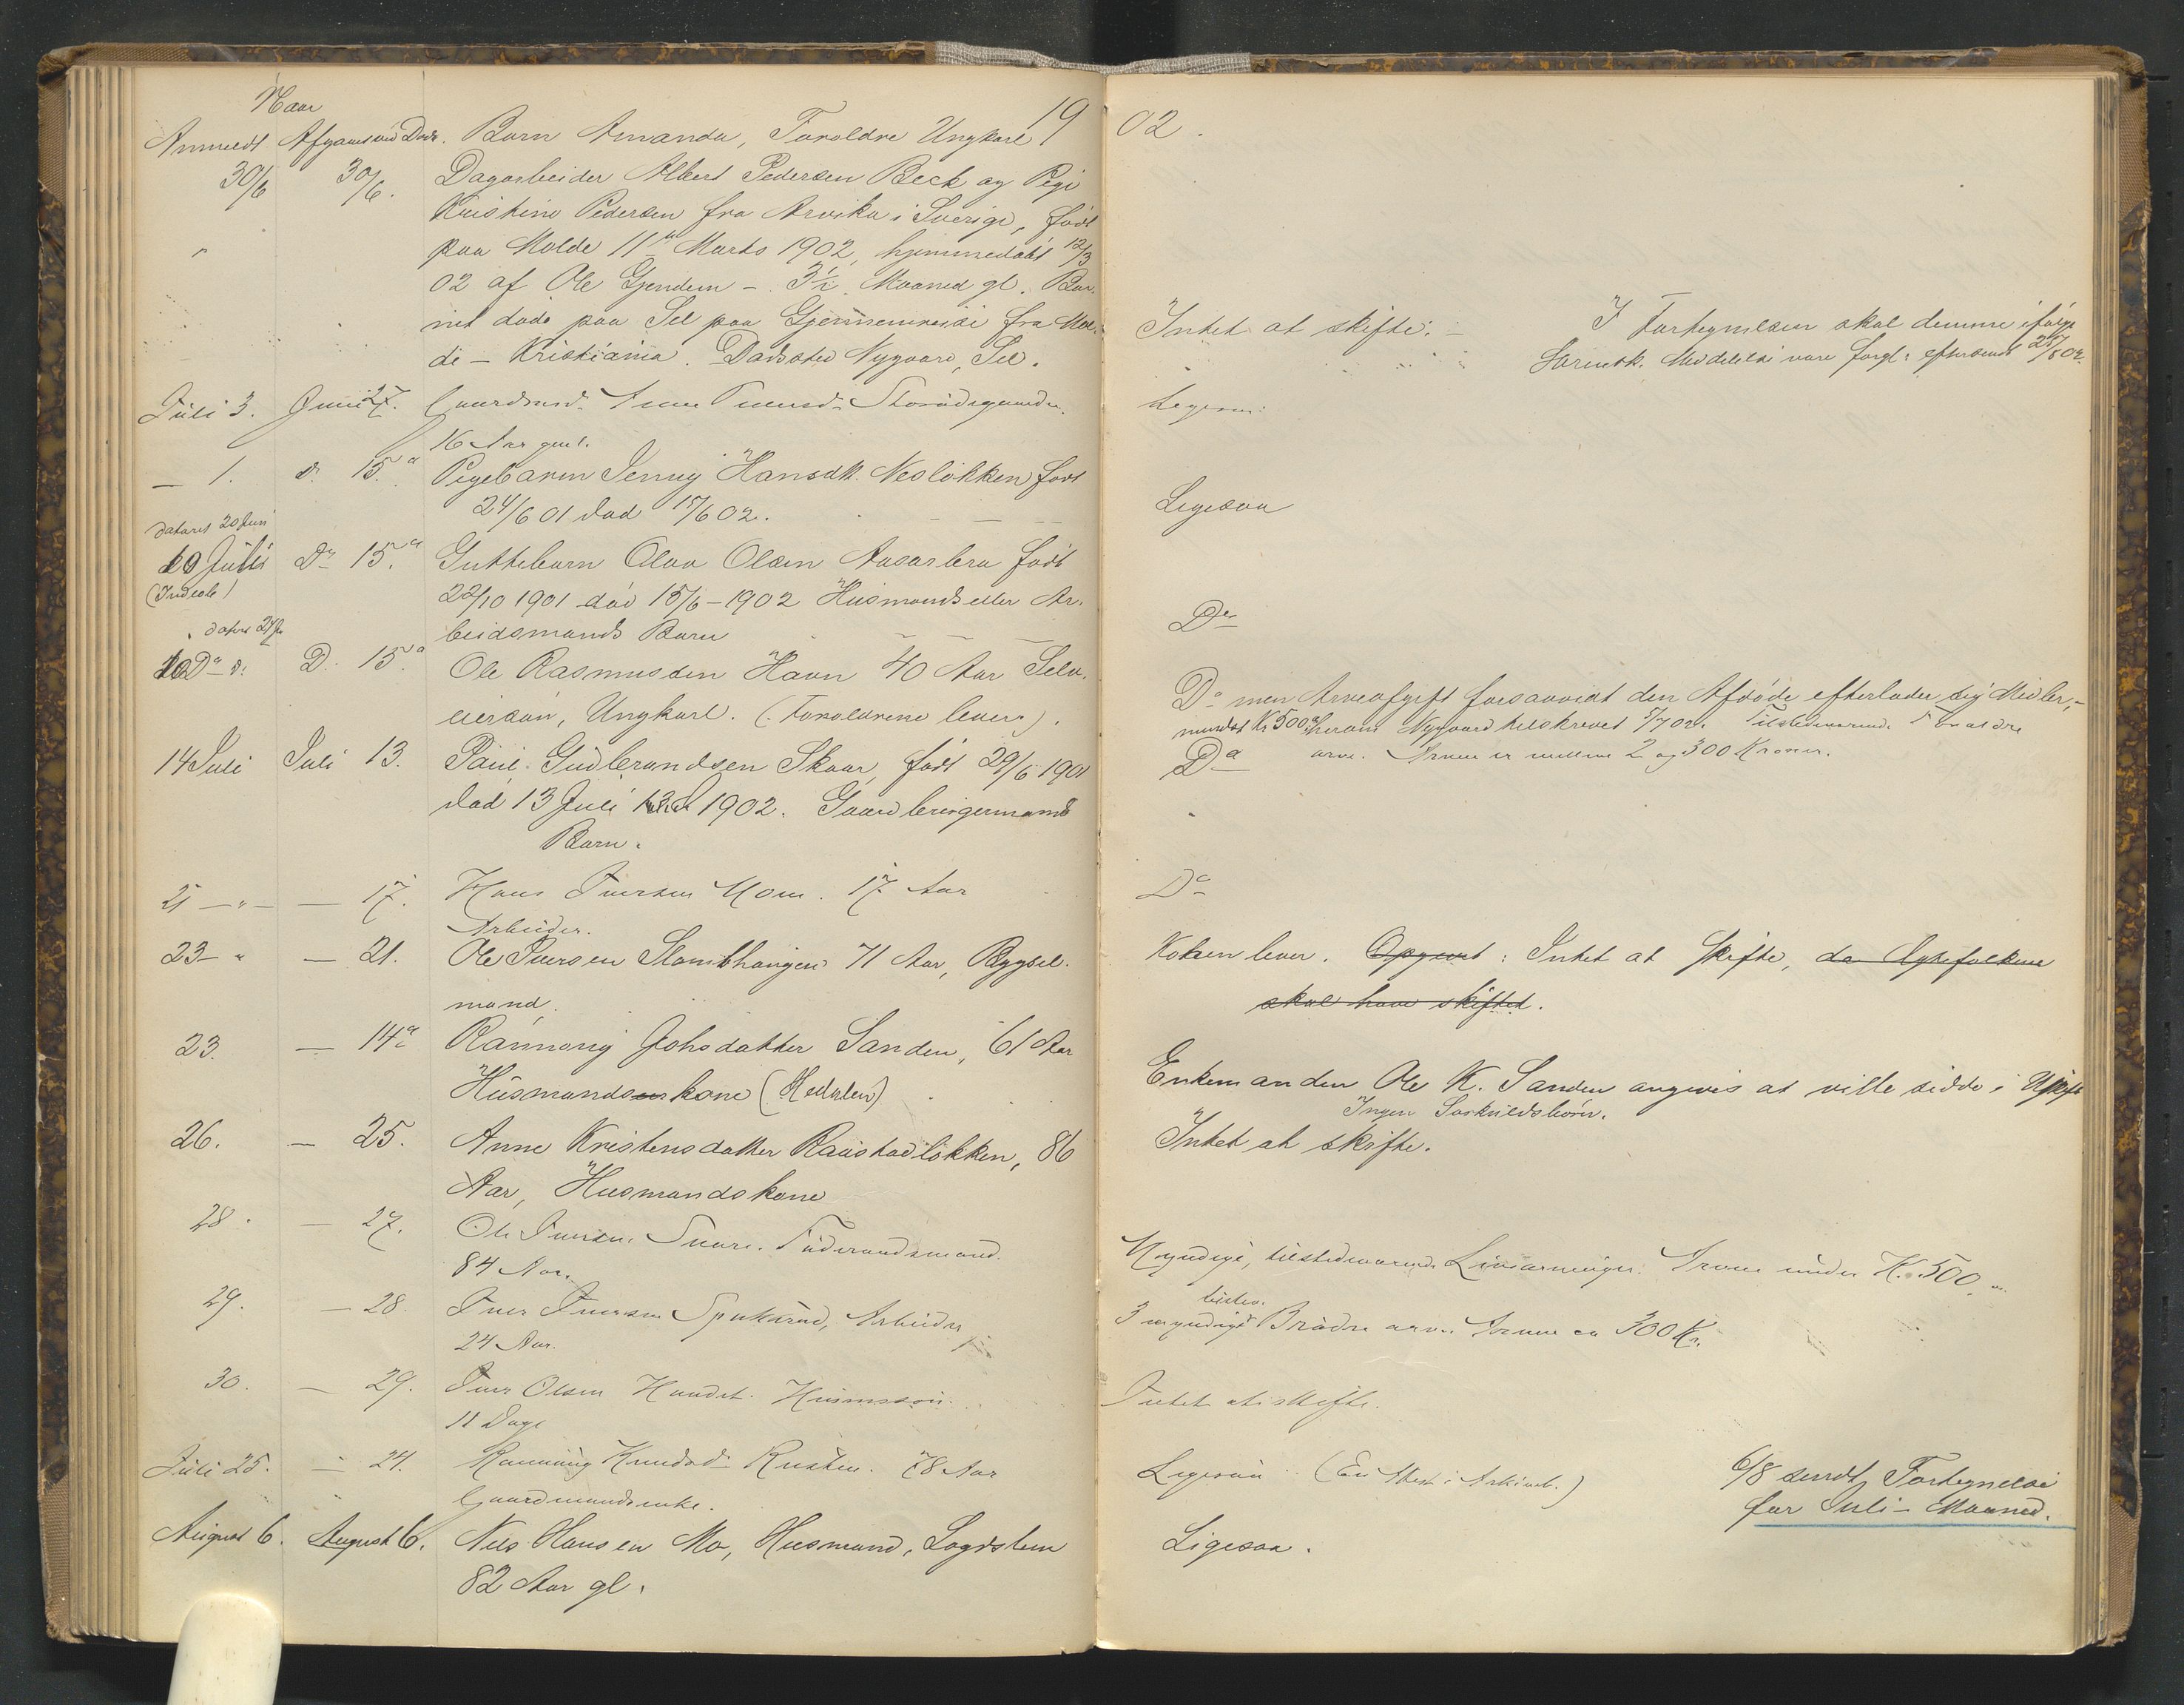 Naar
19 02.
Anmeldt Afgaaet ved Død. Barn Amanda, Foroldre Ungkarl
30/6 30/6. Dagarbeider Albert Pedersen Beck og Pige
Kristine Pedersen fra Arvika i Sverige, født
paa Molde 11te Marts 1902, hjemmedøbt 12/3
02 af Ole Gjendem - 3½ Maaned gl. Bar-
net døde paa Sel paa Gjennemreise fra Mol-
de - Kristiania. Dødssted Nygaard, Sel.
Intet at skifte. -
I Fortegnelsen skal denne ifølge
Sorensk. Meddelelse være forgl: eftersendt 25/8 02.
Juli 3. Juni 27. Gaardmd. Iversd.
16 Aar gml.
- 1. do 15. Pigebarn Jenny Hansdtr. Nesløkken født
24/6 01 død 15/6 02.
Ligesaa
dateret 20 Juni
10 Juli Do 15. Guttebarn Olav Olsen født
22/10 1901 død 15/6 - 1902 Husmands eller Ar-
beidsmands Barn
Do
10 Do D. 15. Ole Rasmussen Havn 40 Aar Selv-
eiersøn, Ungkarl. (Foroldrene lever).
Do men Arveafgift forsaavidt den Afdøde efterlader sig Midler,
mindst Kr 500. Herom Nygaard tilskrevet 5/7 02. Tilstedeværende Foroldre
arve. Arven er mellem 2 og 300 Kroner.
14 Juli Juli 13. Paul Gudbrandsen Skaar, født 29/6 1901
død 13 Juli 1902. Gaardbrugermands
Barn.
Do
21 - " - - 17. Hans Iversen Mom. 17 Aar
Arbeider.
Do
23 - " - 21. Ole Iversen Slombhaugen 71 Aar, Bygsel-
mand.
Konen lever. Opgivet: Intet at skifte, da Ægtefolkene
skal have skiftet.
23. - 14. Rønnaug Johsdatter Sanden, 61 Aar
Husmandskone (Hedalen)
Enkemanden Ole K. Sanden angives at ville sidde i Uskift
Ingen Særkuldsbørn.
26. - 25. Anne Kristensdatter Raustadløkken, 86
Aar, Husmandskone
Intet at skifte.
28. - 27. Ole Iversen Føderaadsmand.
84 Aar.
Myndige, tilstedeværende Livsarvinger. Arven under Kr. 500.
29. - 28. Iver Iversen Arbeider
24 Aar.
3 myndige tilstev. Brødre arve. Arven ca 300 Kr.
30. - 29. Iver Olsen Husmssøn.
11 Dage
Intet at skifte.
Juli 25. - 24. Rønnaug Knudsd. Rusten. 78 Aar
Gaardmandsenke.
Ligesaa. (En Attest i Arkivet.)
6/8 sendt Fortegnelse
for Juli-Maaned.
August 6. August 6. Nils Hansen Mo, Husmand, Lægdslem
82 Aar gl.
Ligesaa.